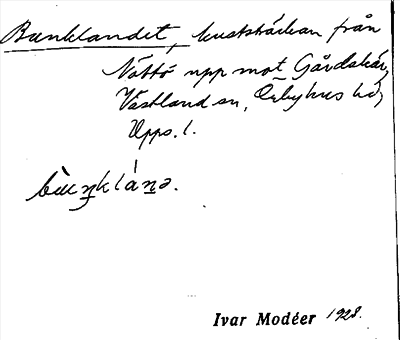 Bunklandet, kuststräckan från
Nöttö upp mot Gårdskär,
Västland sn, Örbyhus hd,
Upps. l.
bùŋklánə.
Ivar Modéer 1928.